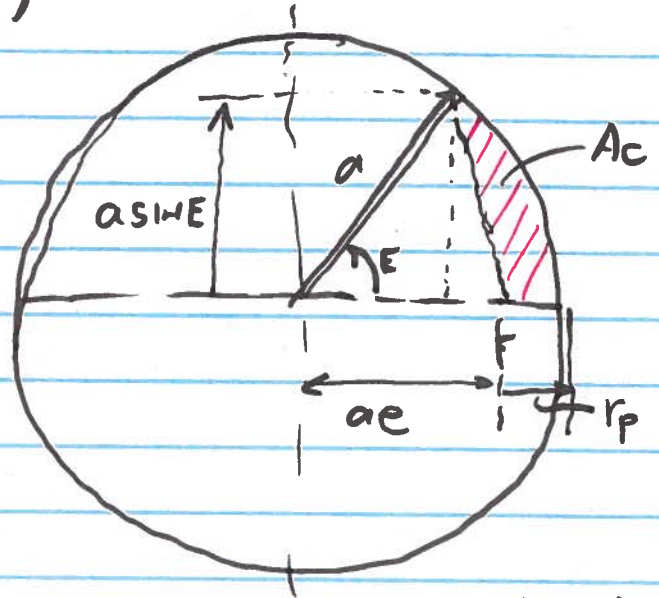 )
a
Ac
a sin E
E
F
ae
rp